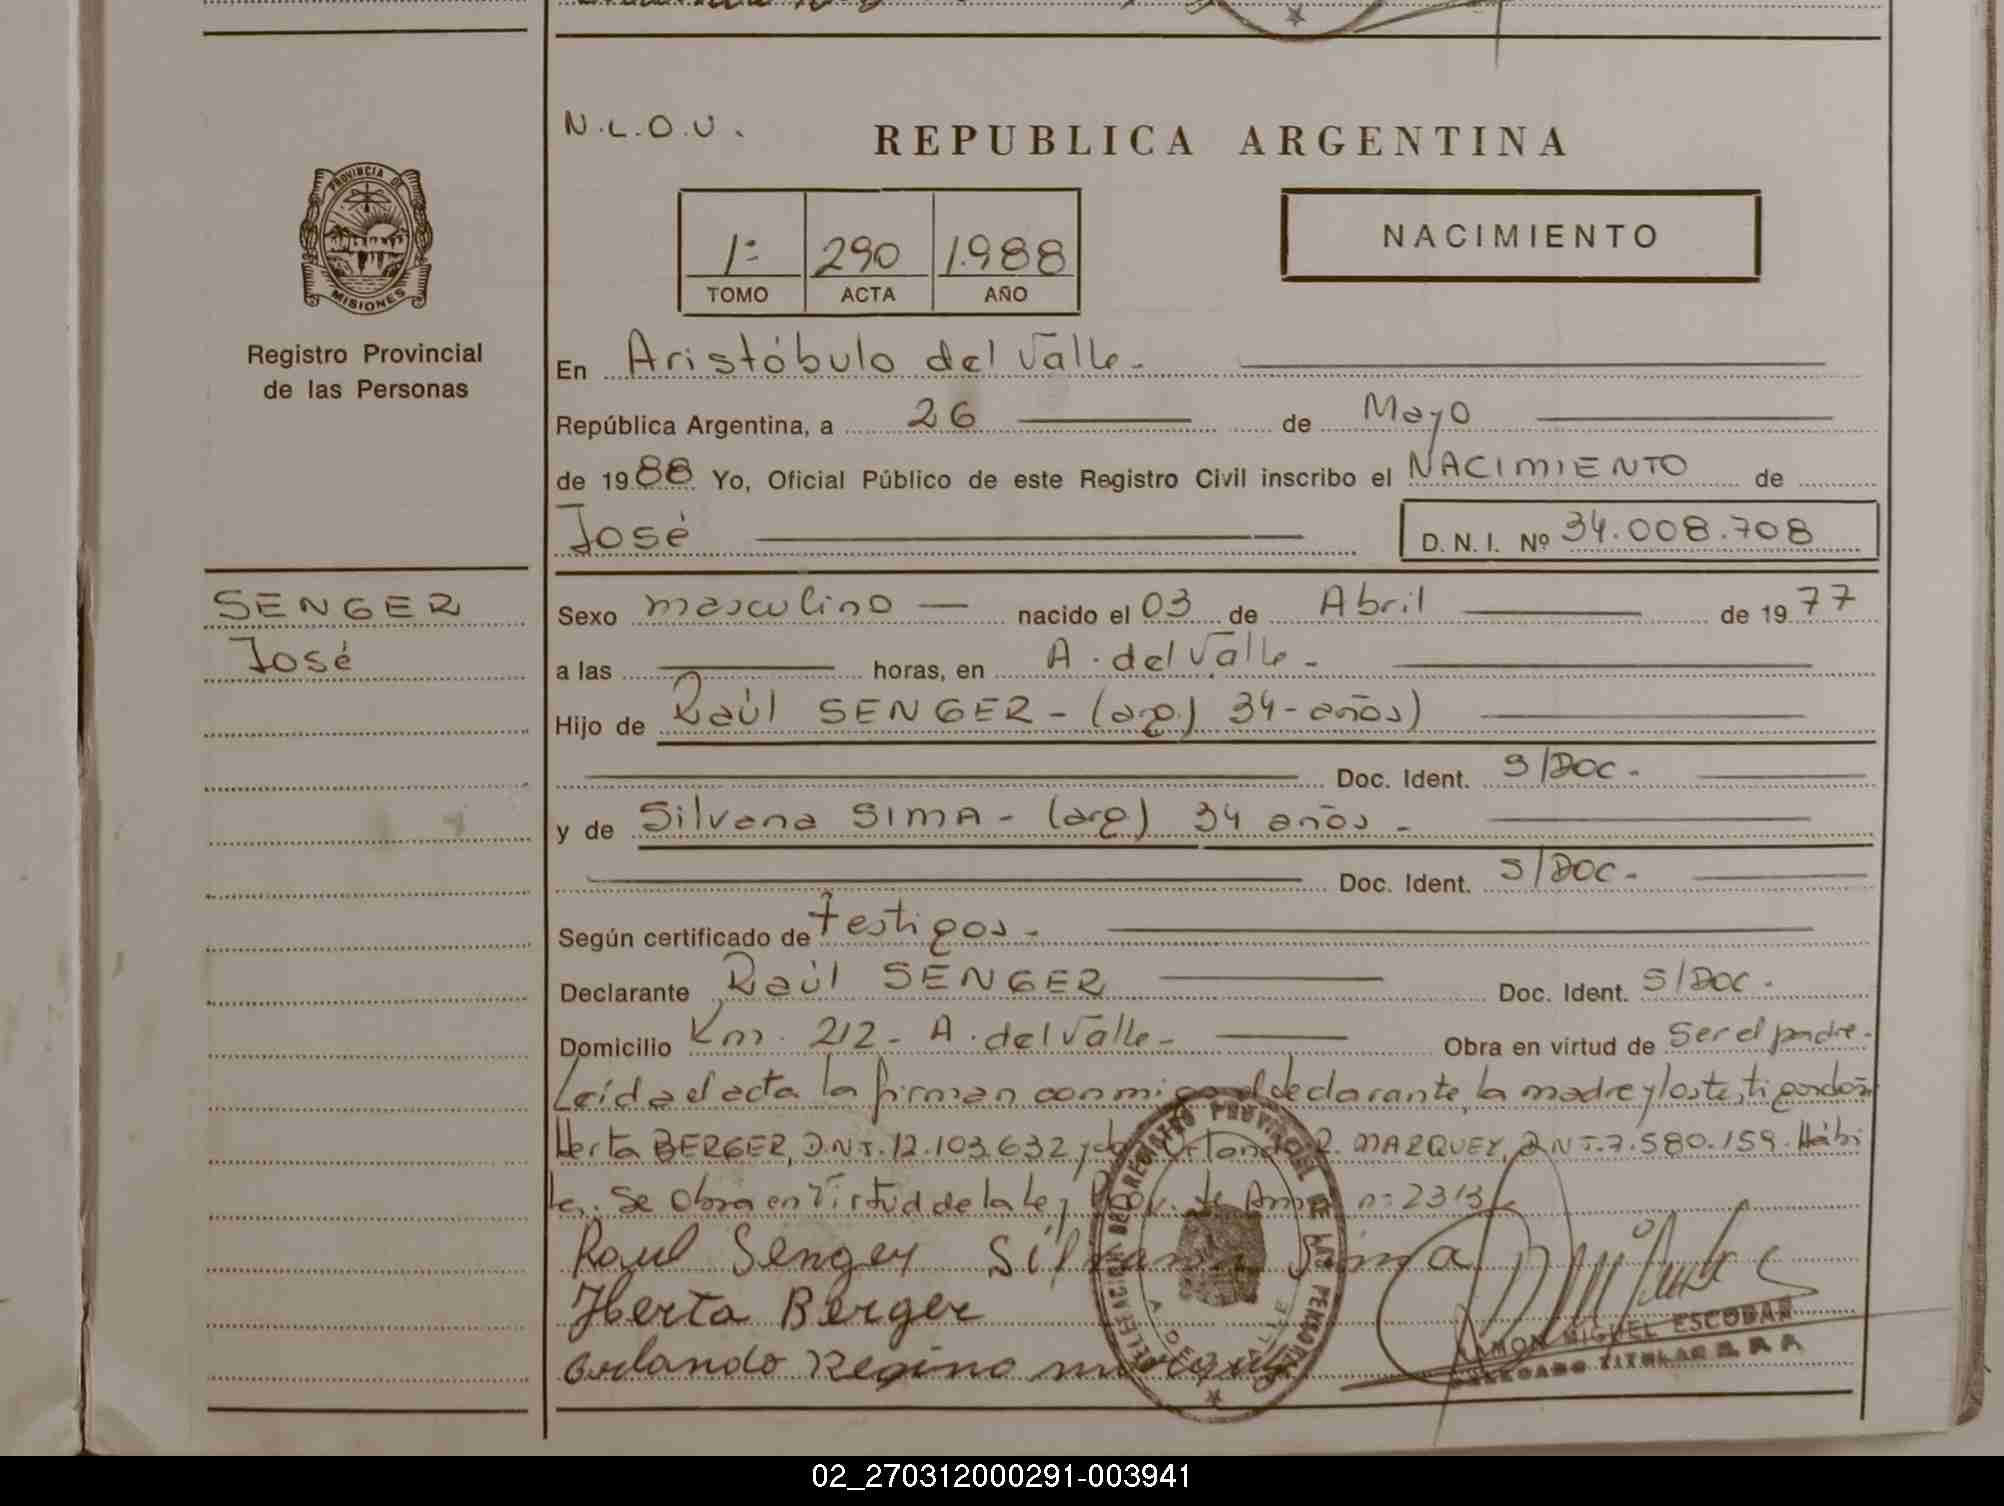 N.L.O.U.
REPUBLICA ARGENTINA
PROVINCIA DE
MISIONES
1º 290 1.988
TOMO ACTA AÑO
NACIMIENTO
Registro Provincial
de las Personas
En Aristóbulo del Valle.-
República Argentina, a 26 de Mayo
de 1988 Yo, Oficial Público de este Registro Civil inscribo el NACIMIENTO de
José D. N. I. Nº 34.008.708
SENGER
José
Sexo masculino nacido el 03 de Abril de 1977
a las horas, en A. del Valle.-
Hijo de Raúl SENGER - (arg.) 34- años)
Doc. Ident. S/DOC.
y de Silvana SIMA - (arg.) 34 años.-
Doc. Ident. S/DOC.-
Según certificado de testigos.-
Declarante Raúl SENGER Doc. Ident. S/DOC.
Domicilio Km. 212- A. del Valle- Obra en virtud de Ser el padre.
Leída el acta la firman conmigo el declarante, la madre y los testigos doña
Herta BERGER, D.N.I. 12.103.632 y don Orlando R. MARQUEZ, D.N.I. 7.580.159. Hábi
les. Se obra en Virtud de la Ley Prov. de Amn. nº 2313
Raul Senger Silvana Sima
Herta Berger
Orlando Regino
DELEGACION DEL REGISTRO PROVINCIAL DE LAS PERSONAS
A. DEL VALLE
RAMON MIGUEL ESCOBAR
DELEGADO TITULAR R. P. P.
02_270312000291-003941